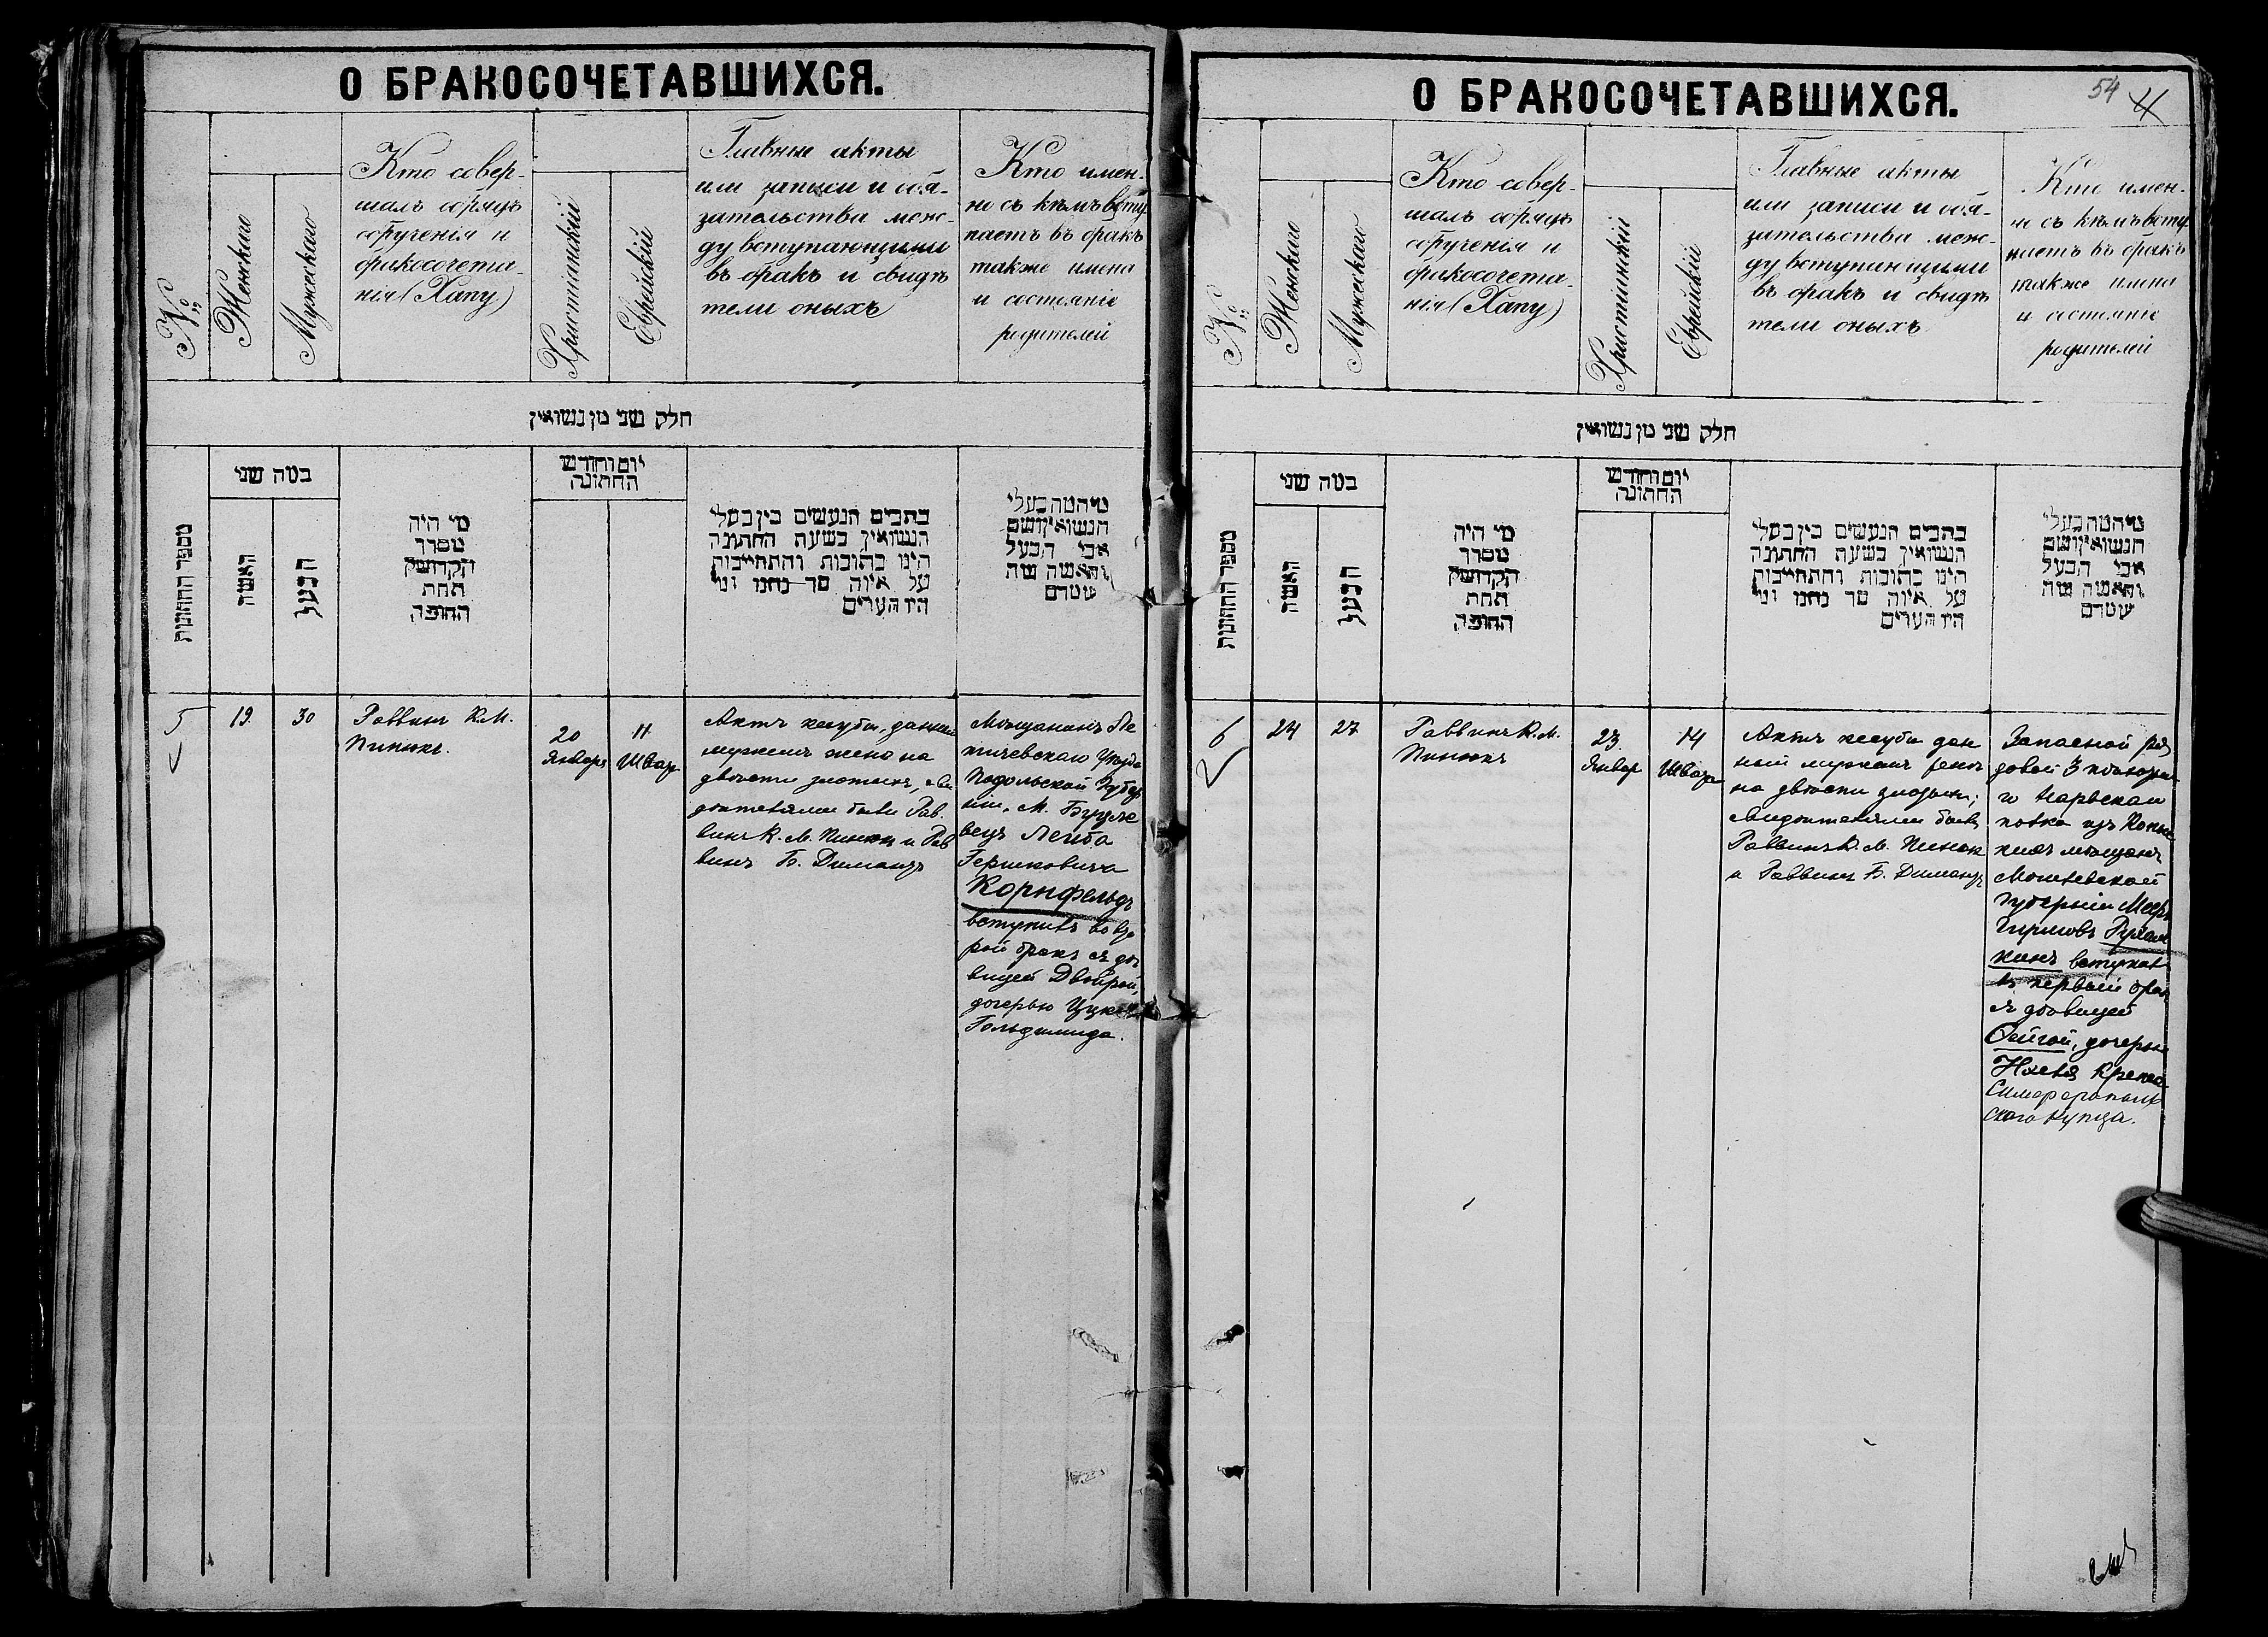 О БРАКОСОЧЕТАВШИХСЯ.
№
Женскаго
Мужескаго
Кто совер-
шалъ обрядъ
обрученія и
бракосочета-
нія (Хапу)
Христіанскій
Еврейскій
Главные акты
или записи и обя-
зательства меж-
ду вступающими
въ бракъ и свидѣ
тели оныхъ
Кто имен-
но съ кѣмъ всту
паетъ въ бракъ
также имена
и состояніе
родителей
חלק שני מן נשואין
מספר החתונות
במה שני
האשה
הבעל
מי היה
מסדר
הקדושין
תחת
החופה
יום וחודש
החתונה
כתבים הנעשים בין בעלי
הנשואין בשעת החתונה
היינו כתובות והתחייבות
על איזה סך נתנו ומי
היו העדים
מי המה בעלי
הנשואין ושם
אבי הבעל
והאשה מה
שמדם
5
19.
30
Раввинъ К.М.
Пинюкъ.
20
Январь
11
Шватъ
Актъ кесубы, данный
мужемъ женѣ на
двѣсти злотыхъ, сви
дѣтелями были Рав.
винъ К. М. Пинюкъ и Рав
винъ Б. Димандъ
Мѣщанинъ Ле
тичевскаго Уѣзда
Подольской Губер
ніи, М.
Лейба
Гершковичъ
Корнфельдъ
вступилъ во вто
рой бракъ съ дѣ
вицей Двойрой,
дочерью
Гольдшмида.
О БРАКОСОЧЕТАВШИХСЯ.
54
4
№
Женскаго
Мужескаго
Кто совер-
шалъ обрядъ
обрученія и
бракосочета-
нія (Хапу)
Христіанскій
Еврейскій
Главные акты
или записи и обя-
зательства меж-
ду вступающими
въ бракъ и свидѣ
тели оныхъ
Кто имен-
но съ кѣмъ всту
паетъ въ бракъ
также имена
и состояніе
родителей
חלק שני מן נשואין
מספר החתונות
במה שני
האשה
הבעל
מי היה
מסדר
הקדושין
תחת
החופה
יום וחודש
החתונה
כתבים הנעשים בין בעלי
הנשואין בשעת החתונה
היינו כתובות והתחייבות
על איזה סך נתנו ומי
היו העדים
מי המה בעלי
הנשואין ושם
אבי הבעל
והאשה מה
שמדם
6
24
27
Раввинъ К.М.
Пинюкъ
23
Январ
14
Шватъ
Актъ кесубы дан
ный мужемъ женѣ
на двѣсти злотыхъ;
свидѣтелями были
Раввинъ К. М. Пинюкъ
и Раввинъ Б. Димандъ
Запасной ря
довой 3
го Нарвскаго
полка изъ
мѣщанъ
Могилевской
губерніи Мееръ
вступилъ
въ первый бракъ
съ дѣвицей
Фейгой, дочерью
Симферополь
скаго купца.